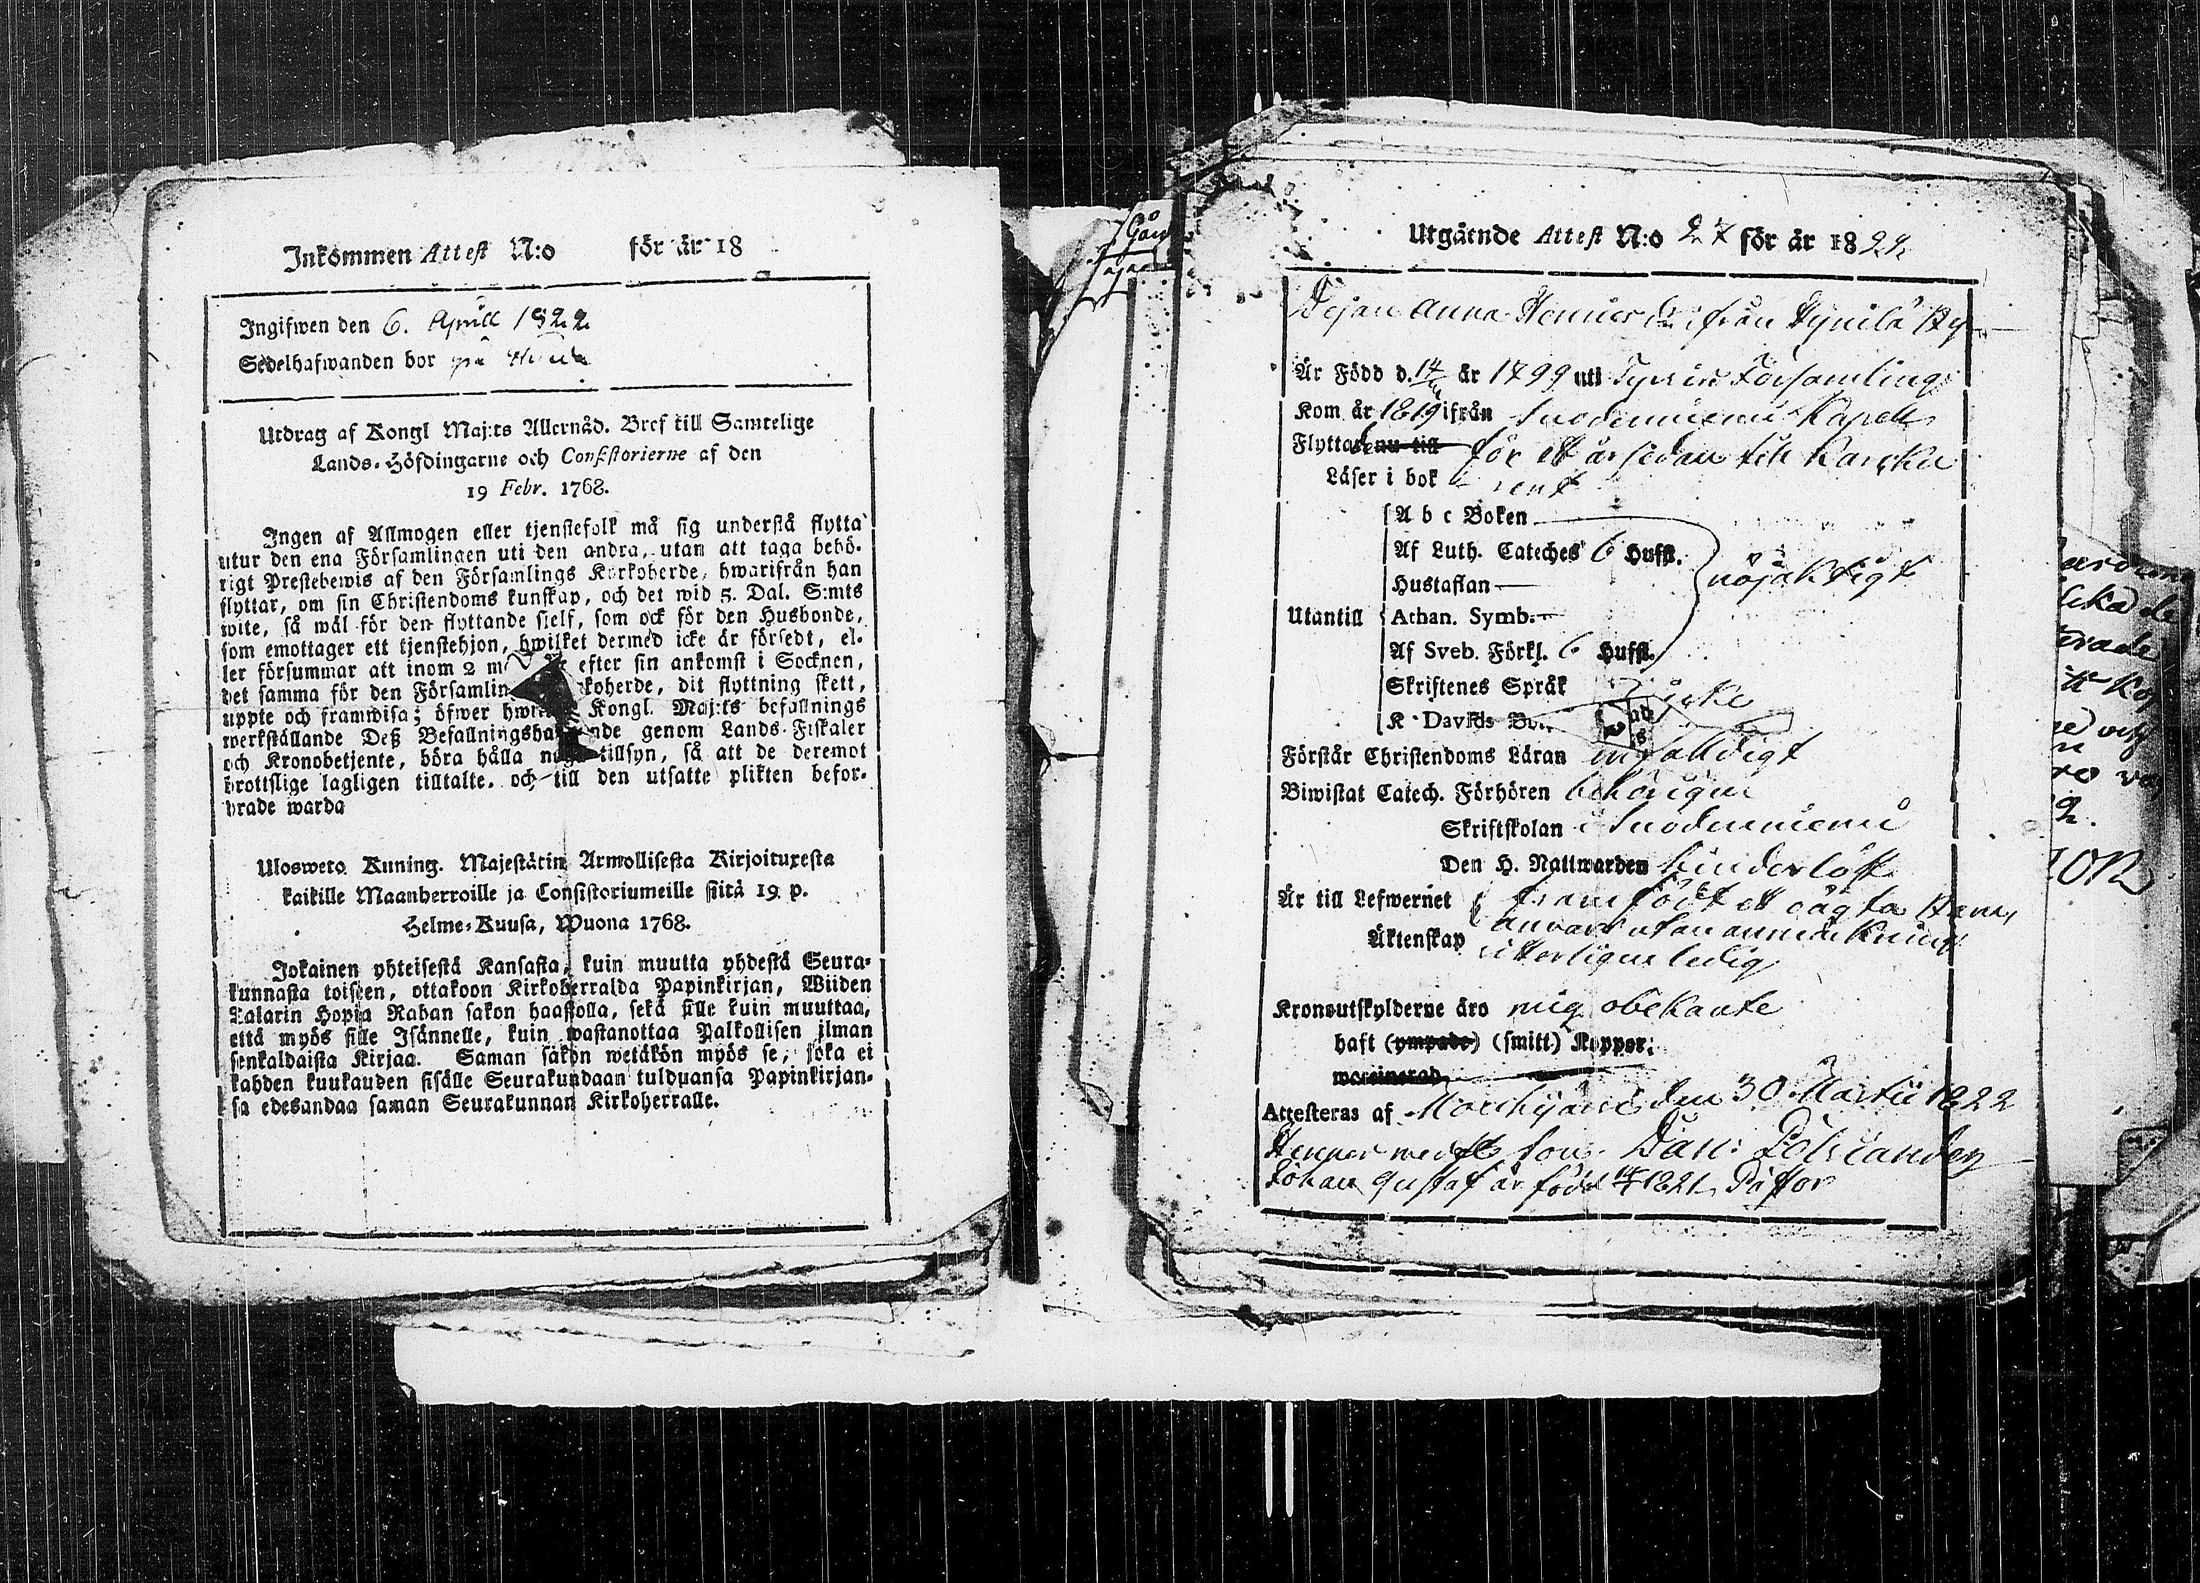 Inkommen Attest N:o för år 18
Ingifwen den 6. Aprill 1822
Sedelhafwanden bor på
Utdrag af Kongl Maj:ts Allernåd. Bref till Samtelige
Lands-Höfdingarne och Consistorierne af den
19 Febr. 1768.
Ingen af Allmogen eller tjenstefolk må sig understå flytta
utur den ena Församlingen uti den andra, utan att taga behö-
rigt Prestebewis af den Församlings Kyrkoherde, hwarifrån han
flyttar, om sin Christendoms kunskap, och det wid 5. Dal. S:mts
wite, så wäl för den flyttande sielf, som ock för den Husbonde,
som emottager ett tjenstehjon, hwilket dermed icke är försedt, el-
ler försummar att inom 2 m efter sin ankomst i Socknen,
det samma för den Församlin koherde, dit flyttning skett,
uppte och framwisa; öfwer hwil Kongl. Maj:ts befallnings
werkställande Deß Befallningsha nde genom Lands-Fiskaler
och Kronobetjente, böra hålla noga tillsyn, så att de deremot
brottslige lagligen tilltalte, och till den utsatte plikten befor-
drade warda
Ulosweto Kuning. Majestätin Armollisesta Kirjoituxesta
kaikille Maanherroille ja Consistoriumeille siitä 19 p.
Helme-Kuusa, Wuona 1768.
Jokainen yhteisestä Kansasta, kuin muutta yhdestä Seura-
kunnasta toiseen, ottakoon Kirkoherralda Papinkirjan, Wiiden
Talarin Hopia Rahan sakon haastolla, sekä sille kuin muuttaa,
että myös sille Isännelle, kuin wastanottaa Palkollisen ilman
senkaldaista Kirjaa. Saman sakon wetäkön myös se, joka ei
kahden kuukauden sisälle Seurakundaan tulduansa Papinkirjan-
sa edesandaa saman Seurakunnan Kirkoherralle.
Utgående Attest N:o 27 för år 1822
Pejan Anna Henricsdr ifrån Hynilä By
Är Född d. 14 år 1799 uti Tyrvis Församling
Kom år 1819 ifrån Suodenniemi Kapell
Flyttade nu till för ett år sedan till Karcku
Läser i bok rent
A b c Boken
Af Luth. Cateches 6 Hufst.
Hustaflan
nöjaktigt
Utantill Athan. Symb.
Af Sveb. Förkl. 6 Hufst.
Skriftenes Språk
icke
K Davids Bo
Förstår Christendoms Läran enfalldigt
Biwistat Catech. Förhören behörigen
Skriftskolan i Suodenniemi
Den H. Nattwarden hinderlöst
Är till Lefwernet framfödt ett oägta Barn,
annars utan anmärkning
Äktenskap witterligen ledig
Kronoutskylderne äro mig obekante
haft (ympade) (smitt.) Koppor.
waccinerad
Attesteras af Mouhijärvi den 30 Martii 1822
Hennes medf. son Dan: Pölviander
Johan Gustaf är född 1821 Pastor